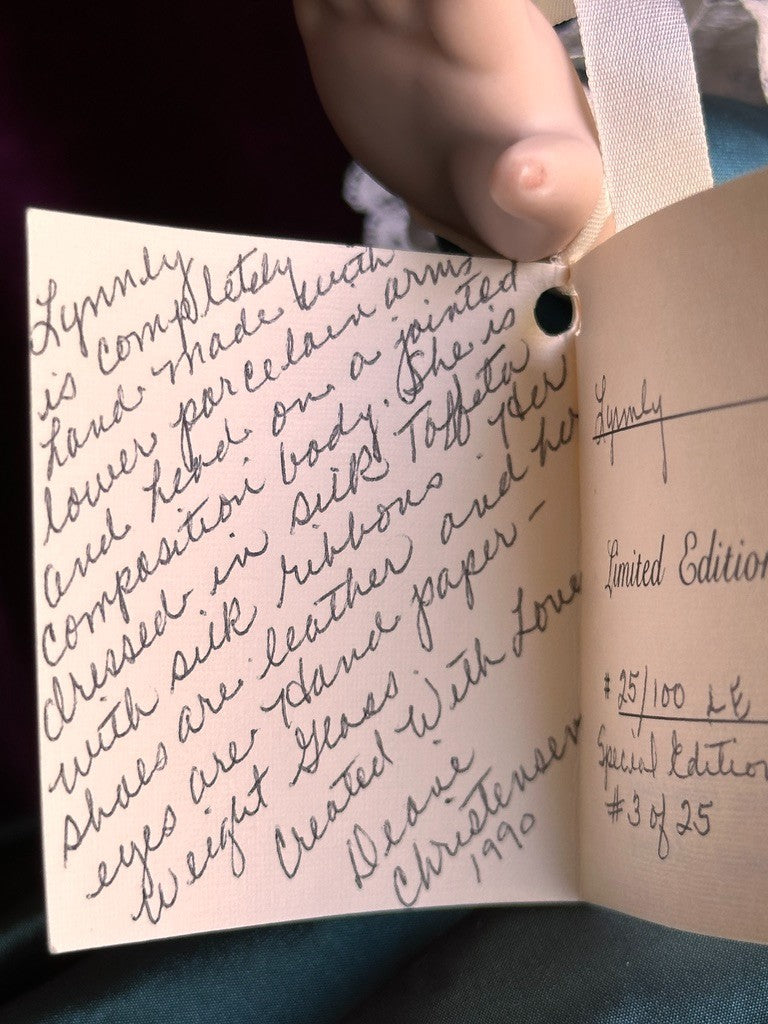 Lynnly
is completely
hand made with
lower porcelain arms
and head on a jointed
composition body. She is
dressed in silk Taffeta
with silk ribbons. Her
shoes are leather and her
eyes are Hand paper-
weight Glass.
Created With Love
Deane
Christensen
1990
Lynnly
Limited Edition
# 25/100 LE
Special Edition
#3 of 25